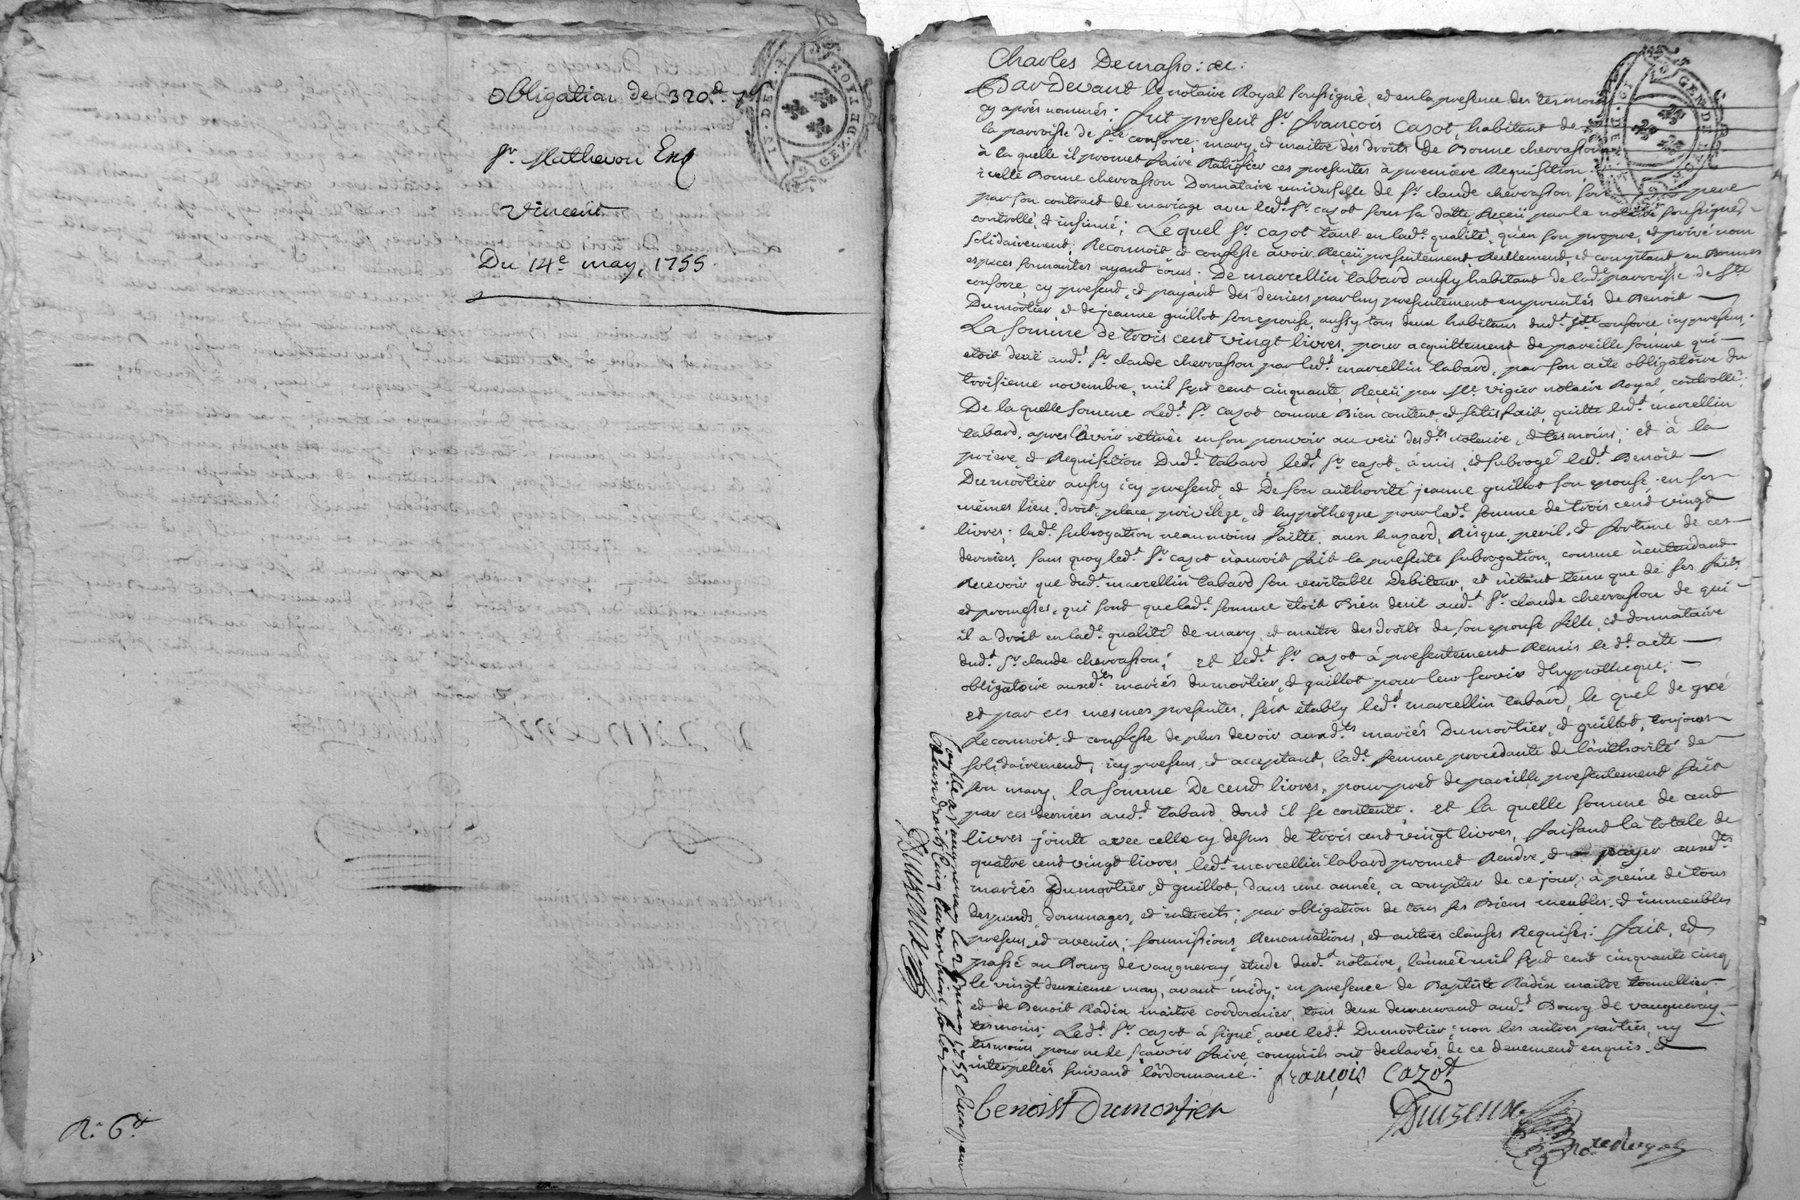 Obligation de 320.
Sr. Mathevon
Vincent
Du 14e. may, 1755.
Charles Demasso: &c:
Pardevant le notaire Royal soussigné, et en la presence des tesmoins
cy aprés nommés: fut present Sr. françois Cazot, habitant de
la parroisse de Ste. consorce, mary, et maitre des droits de Bonne chevrassion
à la quelle il promet faire Ratifier ces presentes à premiere Requisition
icelle Bonne chevrassion Donnataire universelle de Sr. claude chevrassion son pere
par son contract de mariage avec led. Sr. cazot sous sa datte Receü par le notaire soussigné
controllé, et insinué; Le quel Sr. cazot tant en lad. qualité, qu'en son propre, et privé nom
solidairement; Reconnoit, et confesse avoir Receü presentement Reellement, et comptant en Bonnes
especes sonnantes ayant cours; De marcellin tabard aussy habitant de lad. parroisse de Ste
consorce, cy present, et payant des deniers par luy presentement empruntés de Benoit
Dumortier, et de jeanne guillot son epouse, aussy tous deux habitans dud. Ste consorce, icy presens,
La somme de trois cent vingt livres, pour acquittement de pareille somme qui
etoit deüe aud. Sr. claude chevrassion par led. marcellin tabard, par son acte obligatoire du
troisieme novembre, mil sept cent cinquante, Receü par Me. vigier notaire Royal, controllé
De laquelle somme Led. Sr. cazot comme Bien content, et satisfait, quitte led. marcellin
tabard, apres l'avoir retirée en son pouvoir au veü desd. notaire, et tesmoins; et à la
priere, et Requisition Dud. tabard led. Sr. cazot, à mis, et subrogé led. Benoit
Dumortier aussy icy present, et De son authorité jeanne guillot son epouse en ses
mêmes lieu, droit, place, privilege, et hypotheque pour lad. somme de trois cent vingt
livres; lad. subrogation neanmoins faitte aux hazard, Risque, peril, et fortune de ces
derniers, sans quoy led. Sr. cazot n'auroit fait la presente subrogation, comme n'entendant
Recevoir que dud. marcellin tabard son veritable Debiteur, et n'etant tenu que de ses faits
et promesses, qui sont que lad. somme etoit Bien deüe aud. Sr. claude chevrassion de qui
il a droit en lad. qualité de mary, et maitre des droits de son epouse fille, et donnataire
dud. Sr. claude chevrassion; et led. Sr. cazot à presentement Remis led. acte
obligatoire auxd. mariés dumortier, et guillot pour leur servir d'hypotheque;
et par ces mesmes presentes, s'est etably led. marcellin tabard, le quel de gré
Reconnoit, et confesse de plus devoir auxd. mariés Dumortier, et guillot, toujours
solidairement, icy presens, et acceptant, lad. femme procedante de l'authorité de
son mary, la somme De cent livres, pour pret de pareille presentement fait
par ces derniers aud. tabard dont il se contente; et la quelle somme de cent
livres jointe avec celle cy dessus de trois cent vingt livres, faisant la totale de
quatre cent vingt livres, led. marcellin tabard promet Rendre, et payer auxd.
mariés Dumortier, et guillot, dans une année, a compter de ce jour, à peine de tous
despends, dommages, et interets; par obligation de tous ses Biens meubles, et immeubles
presens, et avenir, soumissions, Renonciations, et autres clauses Requises: fait, et
passé au Bourg de vaugneray, etude dud. notaire, l'année mil sept cent cinquante cinq
le vingt deuxieme may, avant midy; en presence de Baptiste Radix maitre tonnellier
et de Benoit Radix, maitre cordonnier, tous deux demeurant aud. Bourg de vaugneray,
tesmoins; Led. Sr. cazot à signé, avec led. Dumortier; non les autres parties, ny
tesmoins pour ne le sçavoir faire comm'ils ont declarés de ce deuement enquis, et
interpellés suivant l'ordonnance:
françois Cazot
benoist Dumortier
Controllé a vaugneray le may 1755